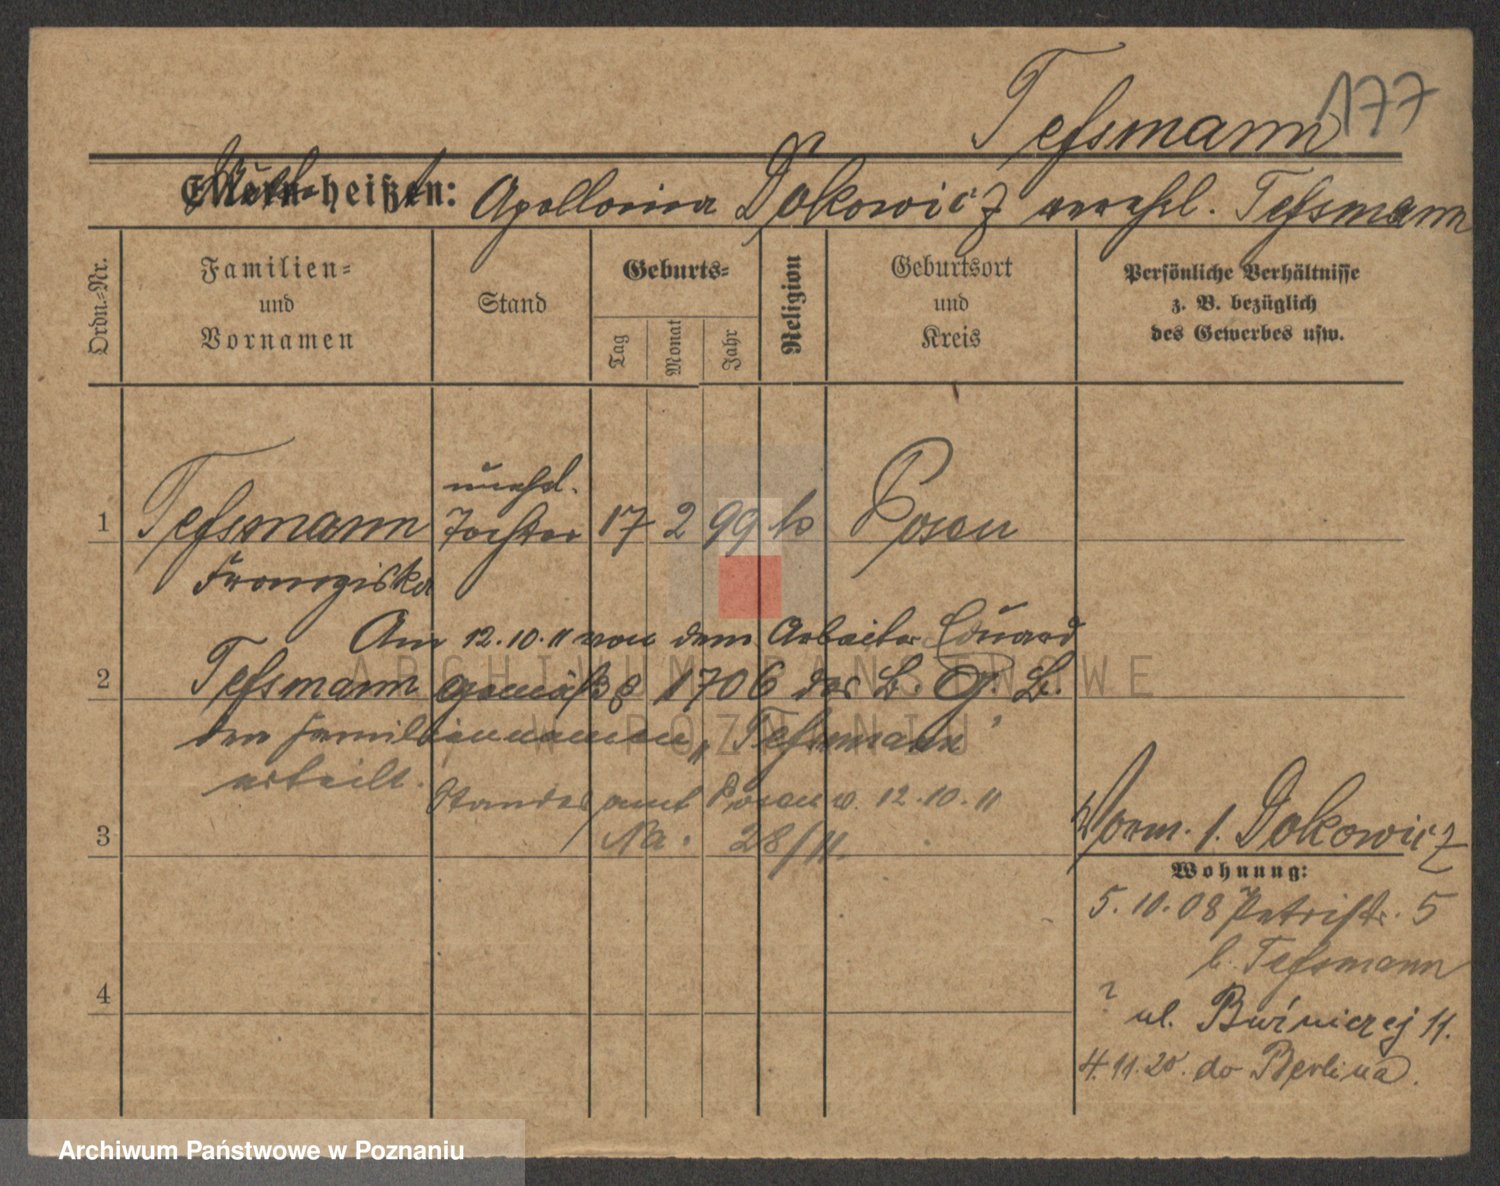 Teſsmann 177
heißen: Apollonia Dolkowicz verehl. Teſsmann
Ordn.-Nr.
Familien-
und
Vornamen
Stand
Geburts-
Tag
Monat
Jahr
Religion
Geburtsort
und
Kreis
Persönliche Verhältnisse
z. B. bezüglich
des Gewerbes usw.
unehel.
1 Teſsmann Tochter 17 2 99 Posen
Franziska
Am 12.10.11 von dem Arbeiter Eduard
2 Teſsmann gemäß § 1706 des B. G. B.
den Familiennamen „Teſsmann"
erteilt.
Standesamt Posen 12.10.11
No. 28/11.
3
Vorm. 1. Dolkowicz
Wohnung:
5.10.08 Petristr. 5
b. Teſsmann
4
? ul. 11.
4.11.20. do Berlina.
ARCHIWUM PAŃSTWOWE
W POZNANIU
Archiwum Państwowe w Poznaniu